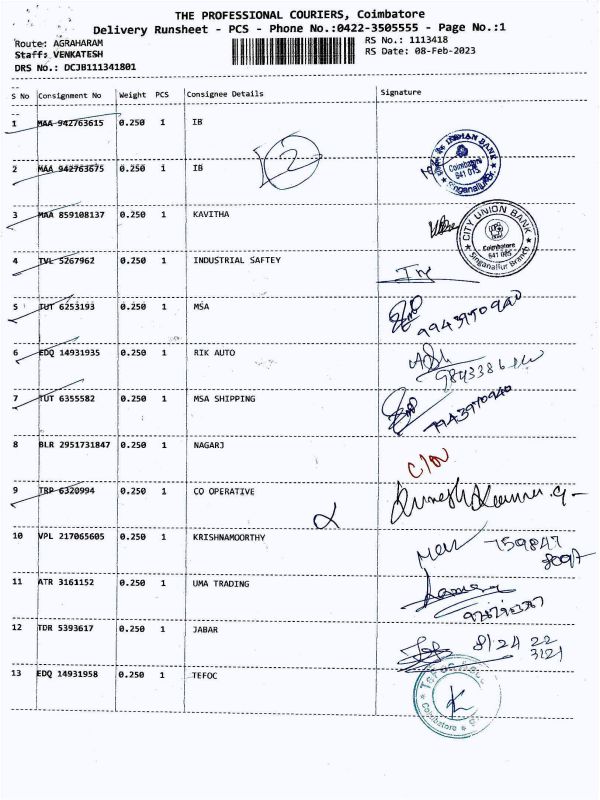 THE PROFESSIONAL COURIERS, Coimbatore
Delivery Runsheet - PCS - Phone No.:0422-3505555 - Page No.:1
Route: AGRAHARAM
RS No.: 1113418
Staff: VENKATESH
RS Date: 08-Feb-2023
DRS No.: DCJB111341801
S No Consignment No Weight PCS Consignee Details Signature
1 MAA 942763615 0.250 1 IB
2 MAA 942763675 0.250 1 IB
2
INDIAN BANK
Coimbatore
641 015
Singanallur Br.
3 MAA 859108137 0.250 1 KAVITHA
CITY UNION BANK
Coimbatore
641 005
Singanallur Branch
4 TVL 5267962 0.250 1 INDUSTRIAL SAFTEY
5 TUT 6253193 0.250 1 MSA
6 EDQ 14931935 0.250 1 RIK AUTO
7 TUT 6355582 0.250 1 MSA SHIPPING
8 BLR 2951731847 0.250 1 NAGARJ
9 TRP 6320994 0.250 1 CO OPERATIVE
10 VPL 217065605 0.250 1 KRISHNAMOORTHY
759847
11 ATR 3161152 0.250 1 UMA TRADING
12 TDR 5393617 0.250 1 JABAR
8124 22
3121
13 EDQ 14931958 0.250 1 TEFOC
Coimbatore